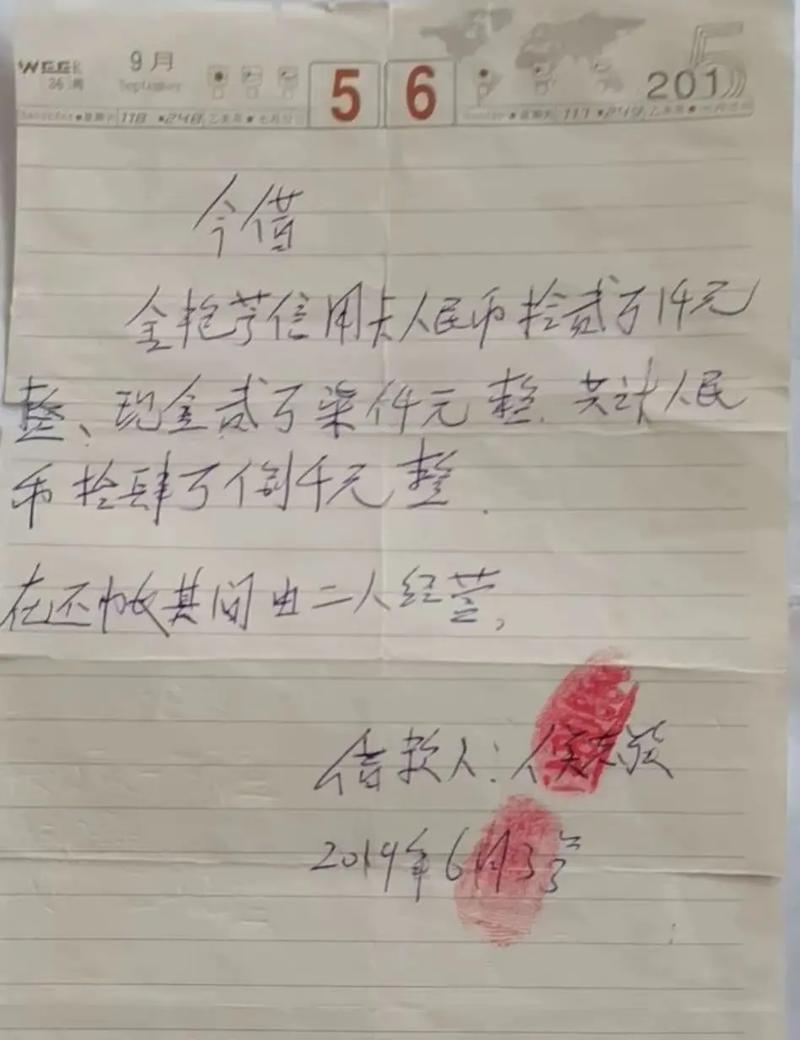 WEEK 9月 5 6 2015
36周 September
今借
全艳芎信用卡人民币拾贰万1仟元
整、现金贰万柒仟元整.共计人民
币拾肆万捌千元整.
在还款其间由二人经营,
借款人:侯志
2019年6月3号